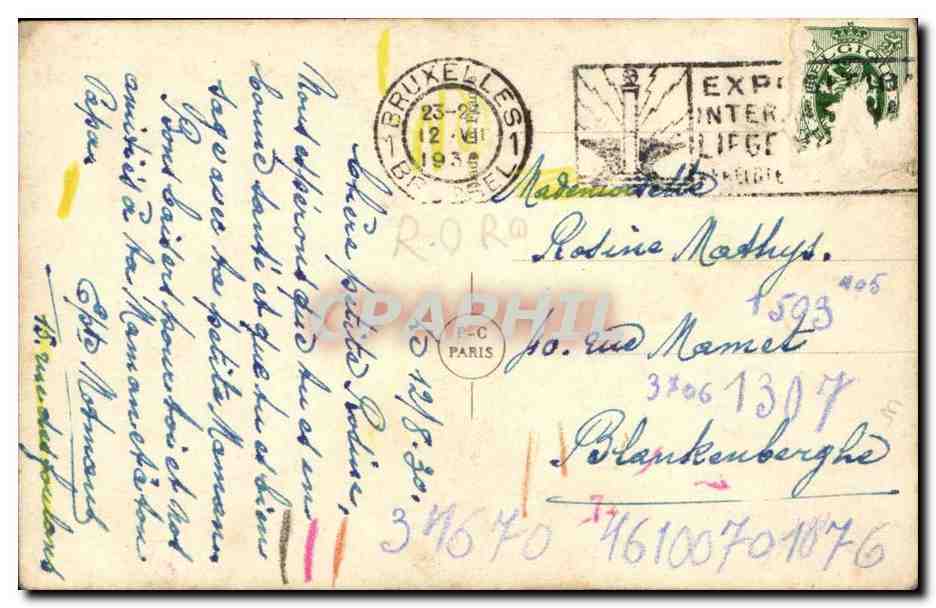 BRUXELLES
1 1
12 VIII
193
EXP
INTER
LIEGE
Mademoiselle
Rosine Mathys.
10. rue Mamet
Blankenberghe
R.O R
1593
3706
1307
37670
46100701076
CPAPHIL
P-C
PARIS
Le 12/8.30.
Chère petite Rosine,
Nous espérons que tu es en
bonne santé et que tu es bien
sage avec ta petite Maman.
Bons baisers pour toi et nos
amitiés à ta Maman et à ton
Papa